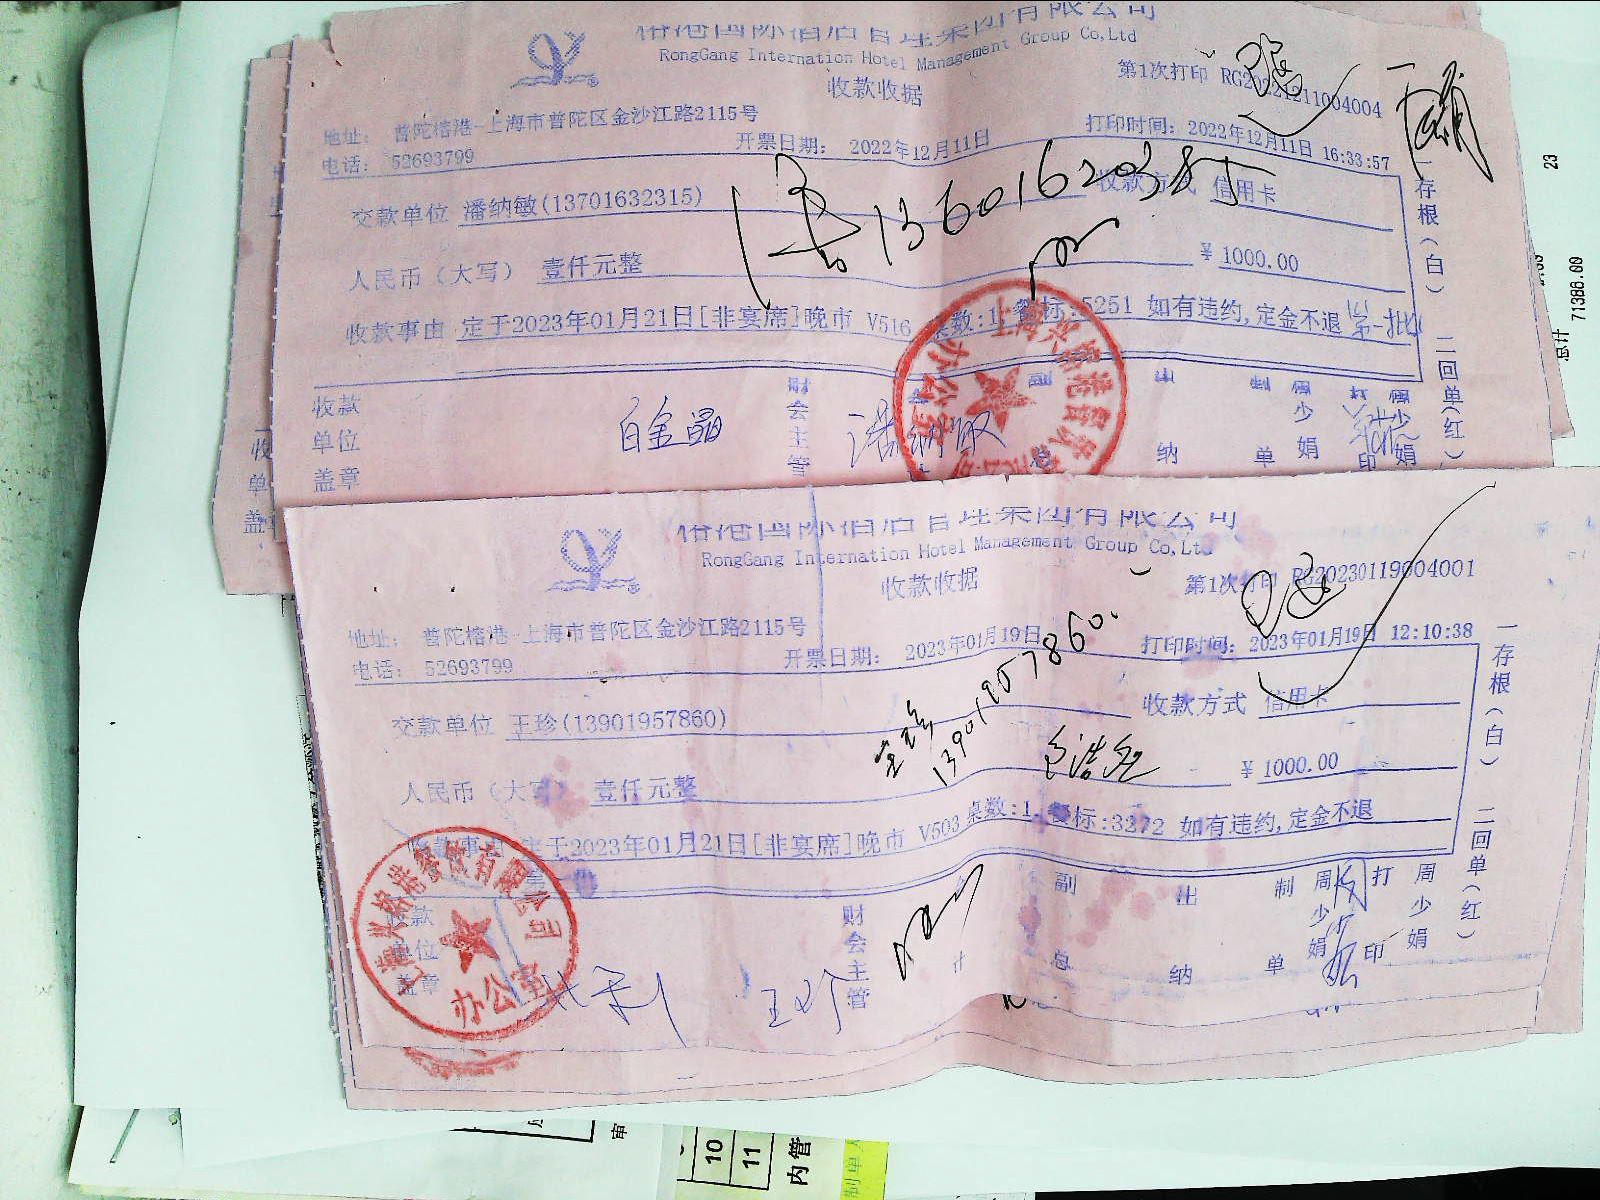 榕港国际酒店管理集团有限公司
RongGang Internation Hotel Management Group Co,Ltd
收款收据
第1次打印 RG20221211004004
地址: 普陀榕港-上海市普陀区金沙江路2115号
电话: 52693799
开票日期: 2022年12月11日
打印时间: 2022年12月11日 16:33:57
交款单位 潘纳敏(13701632315)
收款方式 信用卡
人民币(大写) 壹仟元整
¥ 1000.00
收款事由 定于2023年01月21日[非宴席]晚市 V516 桌数:1, 餐标:5251 如有违约,定金不退
第一批
收款单位盖章
白金晶
财会主管
潘纳敏
副总
出纳
制单
周少娟
打印
周少娟
一存根(白) 二回单(红)
23
71386.00
总计
榕港国际酒店管理集团有限公司
RongGang Internation Hotel Management Group Co,Ltd
收款收据
第1次打印 RG20230119004001
地址: 普陀榕港-上海市普陀区金沙江路2115号
电话: 52693799
开票日期: 2023年01月19日
打印时间: 2023年01月19日 12:10:38
交款单位 王珍(13901957860)
13901957860.
收款方式 信用卡
人民币(大写) 壹仟元整
¥ 1000.00
收款事由 定于2023年01月21日[非宴席]晚市 V503 桌数:1, 餐标:3272 如有违约,定金不退
收款单位盖章
餐饮有限公司
办公室
王珍
财会主管
副总
出纳
制单
周少娟
打印
周少娟
一存根(白) 二回单(红)
10
11
内管
制单人